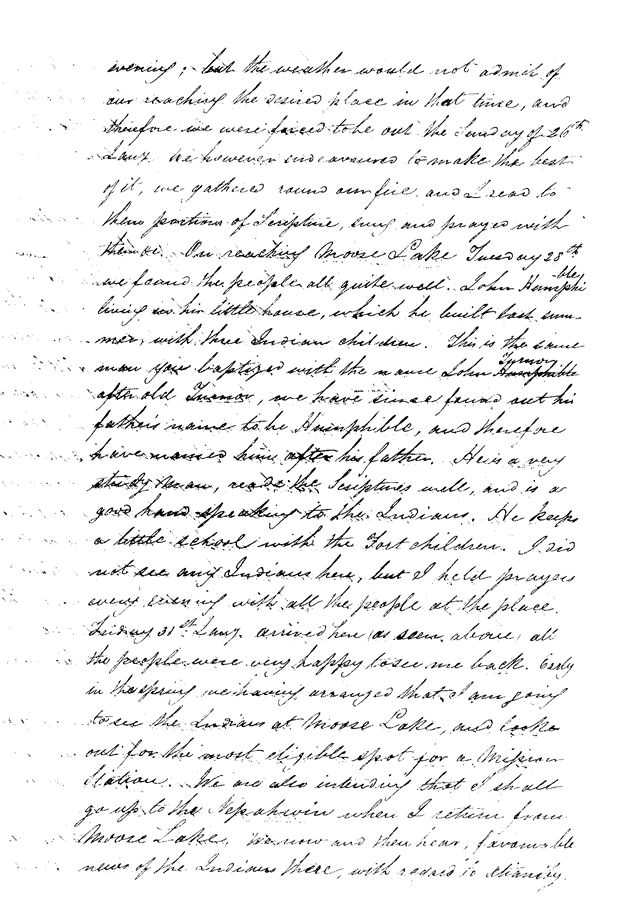 evening; but the weather would not admit of
our reaching the desired place in that time, and
therefore we were forced to be out the Sunday of 26th
Jany. We however endeavoured to make the best
of it, we gathered round our fire and I read to
them portions of Scripture, sung and prayed with
them &c. On reaching Moose Lake Tuesday 28th
we found the people all quite well. John Humphible
living in his little house, which he built last sum-
mer, with three Indian children. This is the same
man you baptized with the name John Turnor Humphible
after old Turnor, we have since found out his
father's name to be Humphible, and therefore
have named him after his father. He is a very
steady man, reads the Scriptures well, and is a
good hand speaking to the Indians. He keeps
a little school with the Fort children. I did
not see any Indians here, but I held prayers
every evening with all the people at the place.
Friday 31st Jany. arrived here as seen above, all
the people were very happy to see me back. Early
in the spring we having arranged that I am going
to see the Indians at Moose Lake, and looke
out for the most eligible spot for a Mission
Station. We are also intending that I shall
go up to the Nepahwin when I return from
Moose Lake. We now and then hear, favourable
news of the Indians there, with regard to Xtianity.